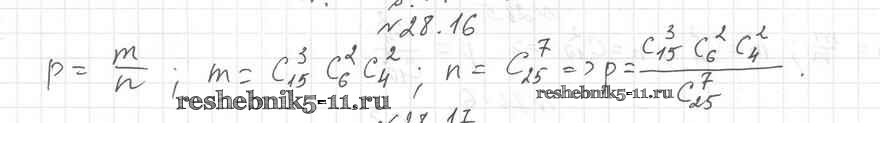 №28.16
p = m/n ; m = C₁₅³ C₆² C₄² ; n = C₂₅⁷ => p = C₁₅³ C₆² C₄² / C₂₅⁷ .
reshebnik5-11.ru reshebnik5-11.ru
№28.17